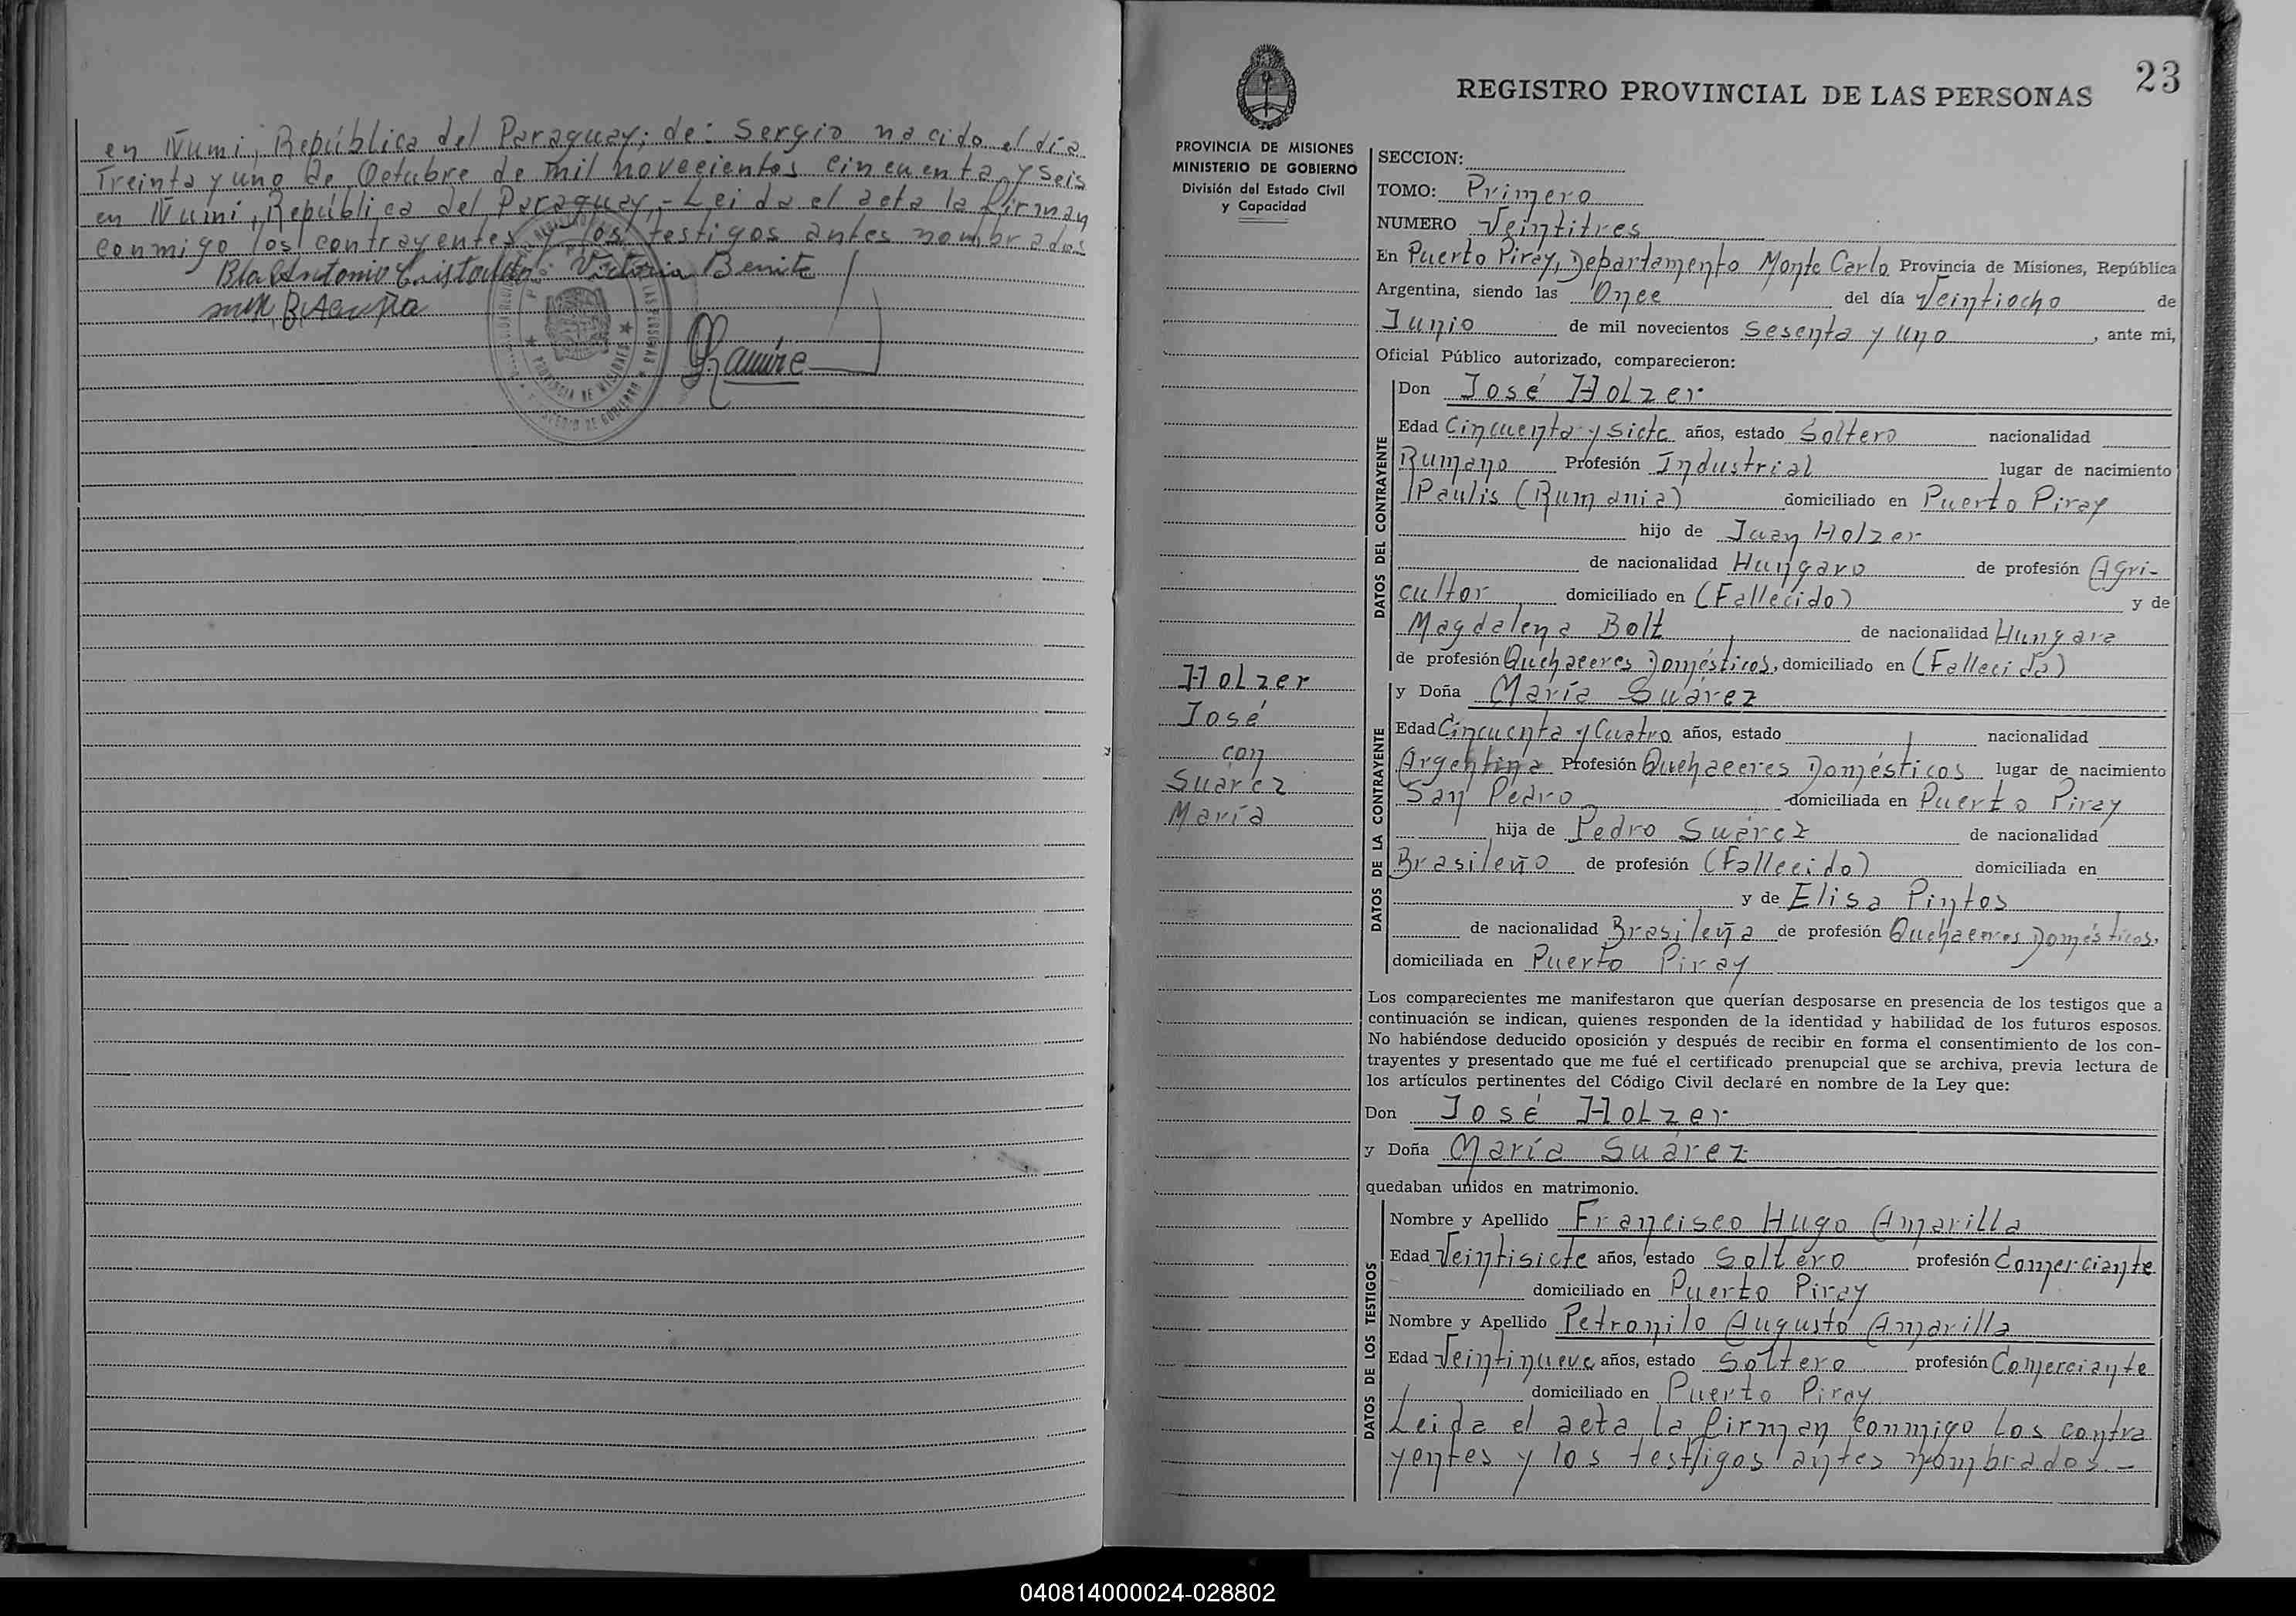 en Ñumi, República del Paraguay; de: Sergio nacido el día
Treinta y uno de Octubre de mil novecientos cincuenta y seis
en Ñumi, República del Paraguay.- Leida el acta la firman
conmigo los contrayentes y los testigos antes nombrados
Victoria Benite
Ramire
PROVINCIA DE MISIONES
23
REGISTRO PROVINCIAL DE LAS PERSONAS
PROVINCIA DE MISIONES
MINISTERIO DE GOBIERNO
División del Estado Civil
y Capacidad
Holzer
José
con
Suárez
María
SECCION:
TOMO: Primero
NUMERO Veintitres
En Puerto Piray, Departamento Monte Carlo Provincia de Misiones, República
Argentina, siendo las Once del día Veintiocho de
Junio de mil novecientos Sesenta y Uno, ante mi,
Oficial Público autorizado, comparecieron:
DATOS DEL CONTRAYENTE
Don José Holzer
Edad Cincuenta y Siete años, estado Soltero nacionalidad
Rumano Profesión Industrial lugar de nacimiento
Paulis (Rumania) domiciliado en Puerto Piray
hijo de Juan Holzer
de nacionalidad Hungaro de profesión Agri-
cultor domiciliado en (Fallecido) y de
Magdalena Bolt de nacionalidad Hungara
de profesión Quehaceres Domésticos, domiciliado en (Fallecida)
DATOS DE LA CONTRAYENTE
y Doña María Suárez
Edad Cincuenta y Cuatro años, estado nacionalidad
Argentina Profesión Quehaceres Domésticos lugar de nacimiento
San Pedro domiciliada en Puerto Piray
hija de Pedro Suárez de nacionalidad
Brasileño de profesión (Fallecido) domiciliada en
y de Elisa Pintos
de nacionalidad Brasileña de profesión Quehaceres Domésticos,
domiciliada en Puerto Piray
Los comparecientes me manifestaron que querían desposarse en presencia de los testigos que a
continuación se indican, quienes responden de la identidad y habilidad de los futuros esposos.
No habiéndose deducido oposición y después de recibir en forma el consentimiento de los con-
trayentes y presentado que me fué el certificado prenupcial que se archiva, previa lectura de
los artículos pertinentes del Código Civil declaré en nombre de la Ley que:
Don José Holzer
y Doña María Suárez
quedaban unidos en matrimonio.
DATOS DE LOS TESTIGOS
Nombre y Apellido Francisco Hugo Amarilla
Edad Veintisiete años, estado Soltero profesión Comerciante
domiciliado en Puerto Piray
Nombre y Apellido Petronilo Augusto Amarilla
Edad Veintinueve años, estado Soltero profesión Comerciante
domiciliado en Puerto Piray
Leida el acta la firman conmigo los contra
yentes y los testigos antes nombrados.-
040814000024-028802